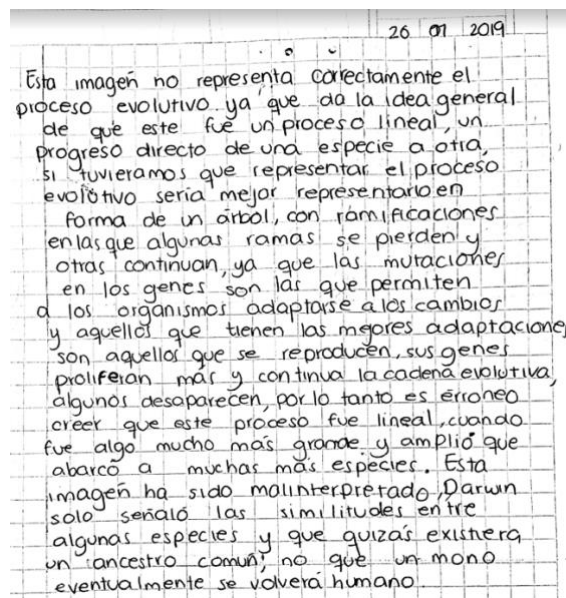 26 01 2019
Esta imagen no representa correctamente el
proceso evolutivo ya que da la idea general
de que este fue un proceso lineal, un
progreso directo de una especie a otra,
si tuvieramos que representar el proceso
evolutivo seria mejor representarlo en
forma de un árbol, con ramificaciones
en las que algunas ramas se pierden y
otras continuan, ya que las mutaciones
en los genes son las que permiten
a los organismos adaptarse a los cambios
y aquellos que tienen las mejores adaptaciones
son aquellos que se reproducen, sus genes
proliferan más y continua la cadena evolutiva,
algunos desaparecen, por lo tanto es érroneo
creer que este proceso fue lineal, cuando
fue algo mucho más grande y amplio que
abarcó a muchas más especies. Esta
imagen ha sido malinterpretado, Darwin
solo señaló las similitudes entre
algunas especies y que quizás existiera
un ancestro comun, no que un mono
eventualmente se volverá humano.